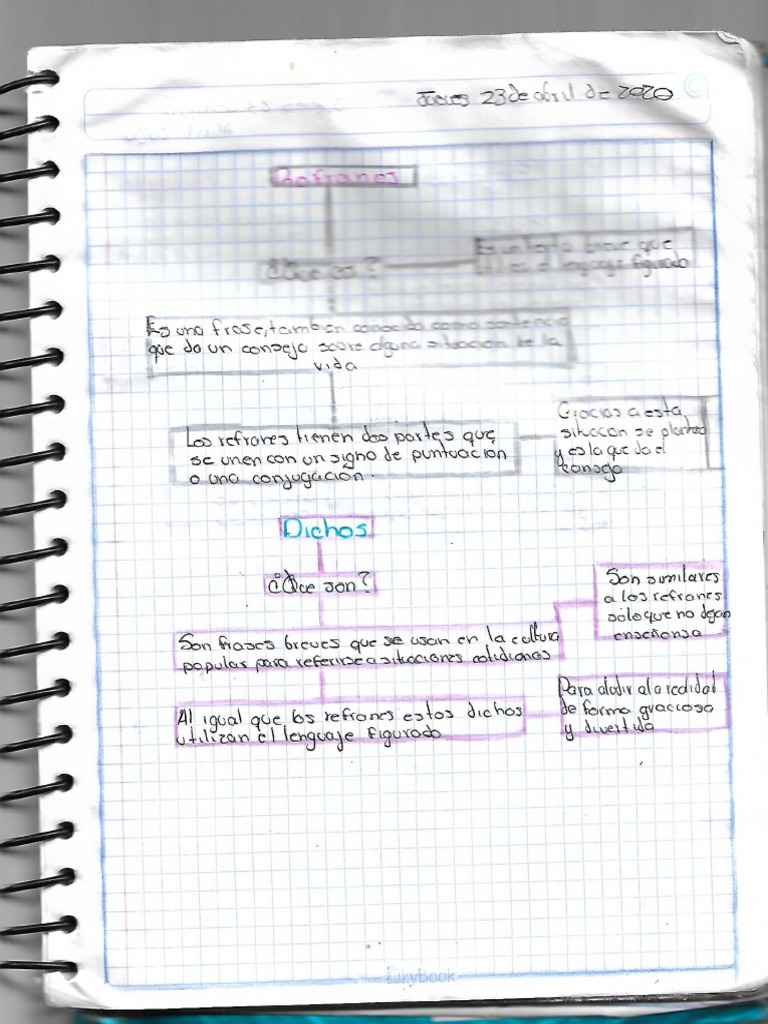 Jueves 23 de abril de 2020
Refranes
¿Que es?
Es un texto breve que
el lenguaje figurado
Es una frase, tambien conocida como sentencia
que da un consejo sobre alguna situación de la
vida
Los refranes tienen dos partes que
se unen con un signo de puntuacion
o una conjugación.
Gracias a esta
situacion se plantea
y es la que da el
consejo
Dichos
¿Que son?
Son similares
a los refranes
sólo que no dejan
enseñanza
Son frases breves que se usan en la cultura
popular para referirse a situaciones cotidianas
Al igual que los refranes estos dichos
utilizan el lenguaje figurado
Para aludir a la realidad
de forma graciosa
y divertida
Likybook